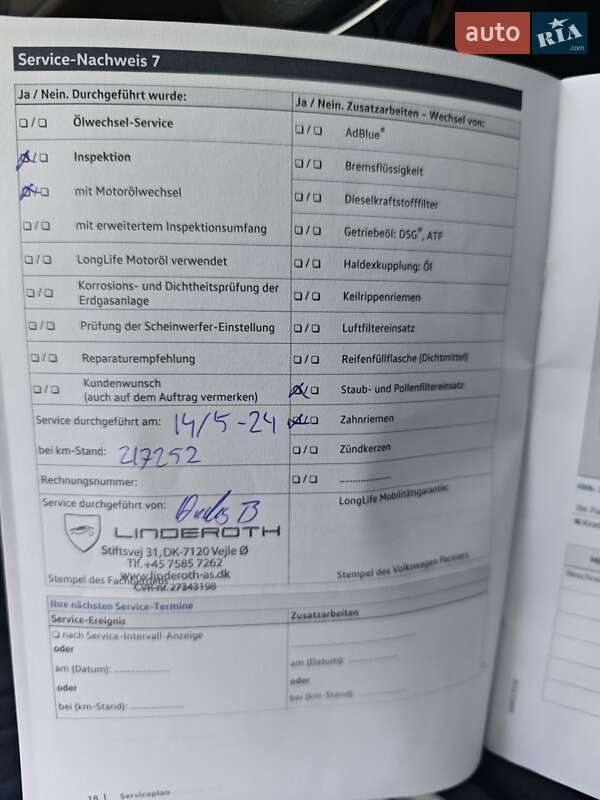 auto RIA.com
Service-Nachweis 7
Ja / Nein. Durchgeführt wurde:
❏ / ❏ Ölwechsel-Service
❏ / ❏ Inspektion
❏ / ❏ mit Motorölwechsel
❏ / ❏ mit erweitertem Inspektionsumfang
❏ / ❏ LongLife Motoröl verwendet
❏ / ❏ Korrosions- und Dichtheitsprüfung der
Erdgasanlage
❏ / ❏ Prüfung der Scheinwerfer-Einstellung
❏ / ❏ Reparaturempfehlung
❏ / ❏ Kundenwunsch
(auch auf dem Auftrag vermerken)
Service durchgeführt am: 14/5-24
bei km-Stand: 217252
Rechnungsnummer:
Service durchgeführt von:
LINDEROTH
Stiftsvej 31, DK-7120 Vejle Ø
Tlf. +45 7585 7262
www.linderoth-as.dk
CVR-nr. 27343198
Stempel des Fachbetriebs
Ja / Nein. Zusatzarbeiten – Wechsel von:
❏ / ❏ AdBlue®
❏ / ❏ Bremsflüssigkeit
❏ / ❏ Dieselkraftstofffilter
❏ / ❏ Getriebeöl: DSG®, ATF
❏ / ❏ Haldexkupplung: Öl
❏ / ❏ Keilrippenriemen
❏ / ❏ Luftfiltereinsatz
❏ / ❏ Reifenfüllflasche (Dichtmittel)
❏ / ❏ Staub- und Pollenfiltereinsatz
❏ / ❏ Zahnriemen
❏ / ❏ Zündkerzen
❏ / ❏ ................
LongLife Mobilitätsgarantie:
Stempel des Volkswagen Partners
Ihre nächsten Service-Termine
Service-Ereignis
❏ nach Service-Intervall-Anzeige
oder
am (Datum): ................
oder
bei (km-Stand): ................
Zusatzarbeiten
................
am (Datum): ................
oder
bei (km-Stand): ................
18 | Serviceplan